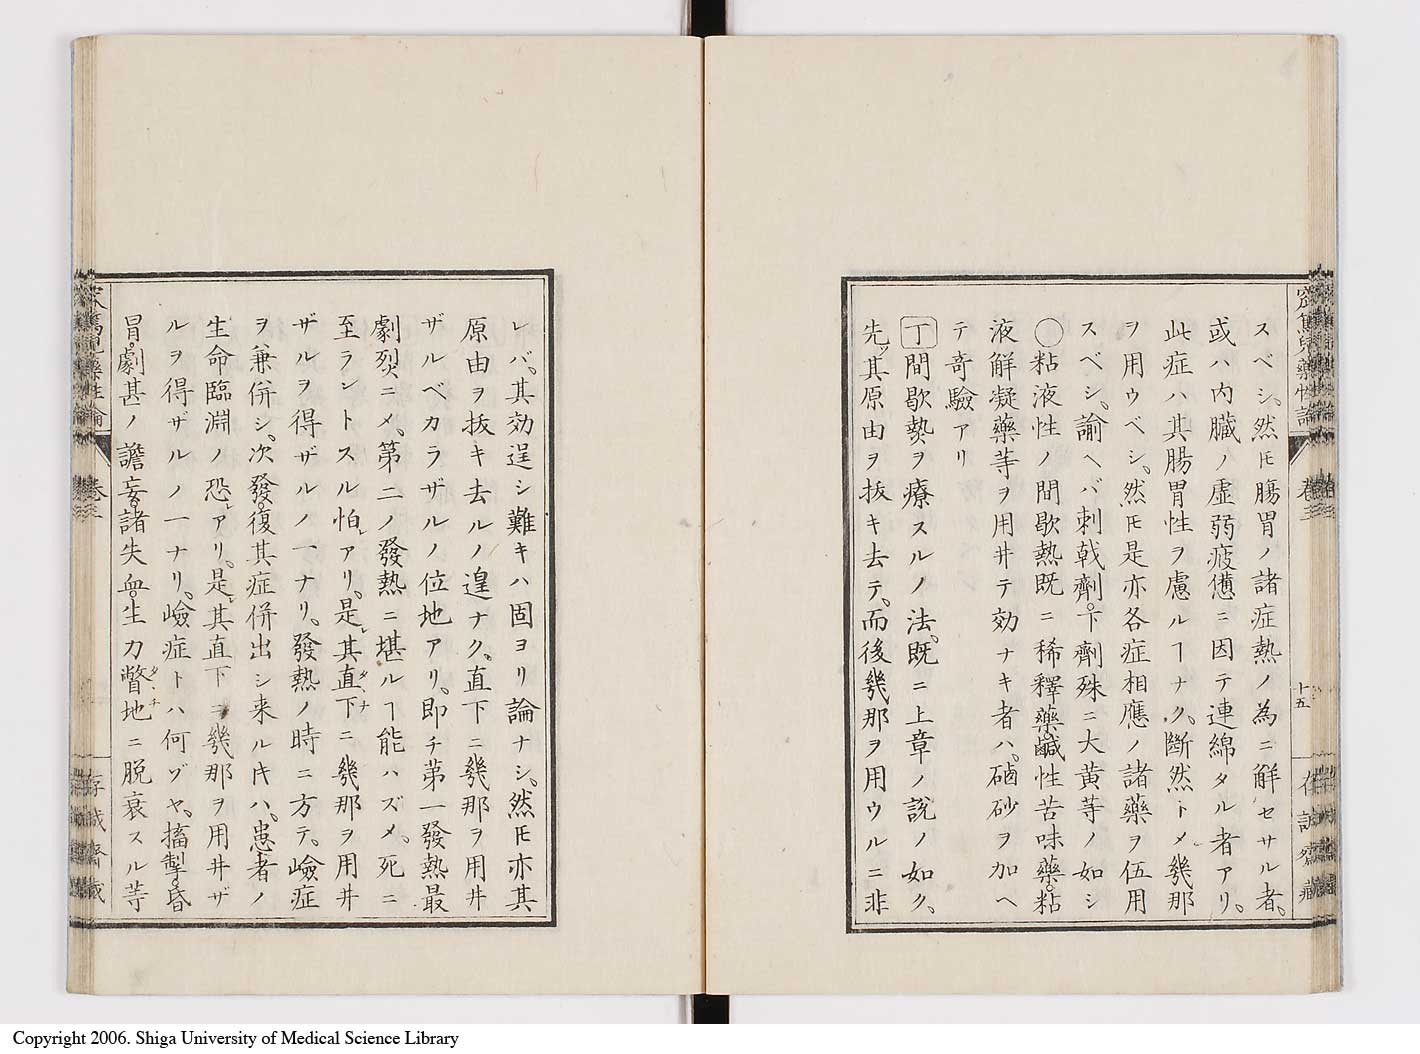 スベシ。然𪜈腸胃ノ諸症熱ノ為ニ解セサル者。
或ハ内臓ノ虚弱疲憊ニ因テ連綿タル者アリ。
此症ハ其腸胃性ヲ慮ルヿナク。断然トメ幾那
ヲ用ウベシ。然𪜈是亦各症相應ノ諸藥ヲ伍用
スベシ。諭ヘバ刺戟劑。下劑殊ニ大黄等ノ如シ
◯粘液性ノ間歇熱既ニ稀釋藥。鹹性苦味藥。粘
液解凝藥等ヲ用井テ効ナキ者ハ。磠砂ヲ加ヘ
テ奇驗アリ
丁間歇熱ヲ療スルノ法。既ニ上章ノ説ノ如ク。
先ッ其原由ヲ抜キ去テ。而後幾那ヲ用ウルニ非
十五
レバ。其効逞シ難キハ固ヨリ論ナシ。然𪜈亦其
原由ヲ抜キ去ルノ遑ナク。直下ニ幾那ヲ用井
ザルベカラザルノ位地アリ。即チ第一發熱最
劇烈ニメ。第二ノ發熱ニ堪ルヿ能ハズメ。死ニ
至ラントスル怕レアリ。是レ其直下ニ幾那ヲ用井
ザルヲ得ザルノ一ナリ。發熱ノ時ニ方テ。嶮症
ヲ兼併シ。次發。復其症併出シ来ル𬼀ハ。患者ノ
生命臨淵ノ恐レアリ。是レ其直下ニ幾那ヲ用井ザ
ルヲ得ザルノ一ナリ。嶮症トハ何ゾヤ。搐掣。昏
冒。劇甚ノ譫妄。諸失血。生力瞥地ニ脱衰スル等
卷三
Copyright 2006. Shiga University of Medical Science Library